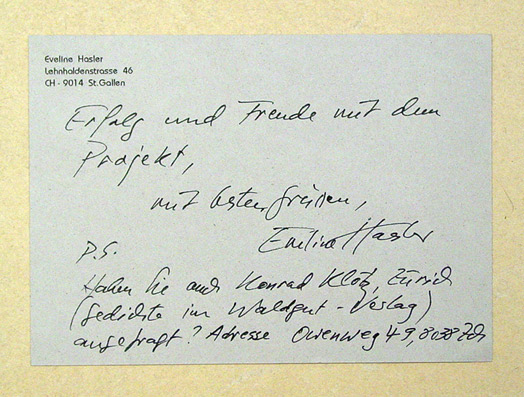 Eveline Hasler
Lehnhaldenstrasse 46
CH - 9014 St.Gallen
Erfolg und Freude mit dem
Projekt,
mit besten Grüssen,
Eveline Hasler
P.S.
Haben Sie auch Konrad Klotz, Zürich
(Gedichte im Waldgut-Verlag)
angefragt? Adresse Owenweg 49, 8038 Zch